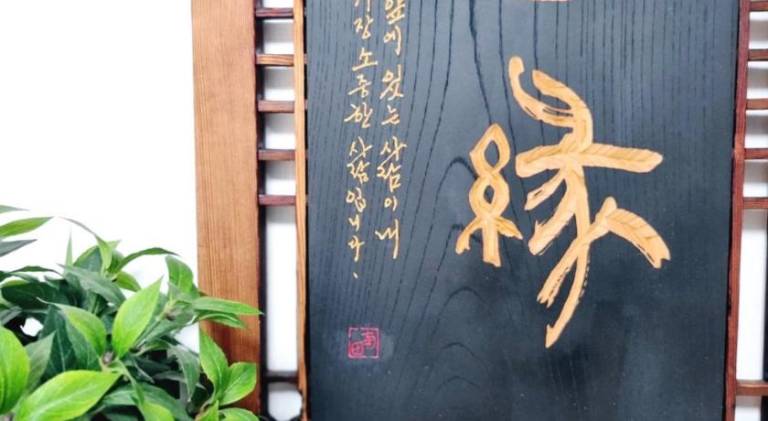 緣
앞에 있는 사람이 내
가장 소중한 사람입니다.